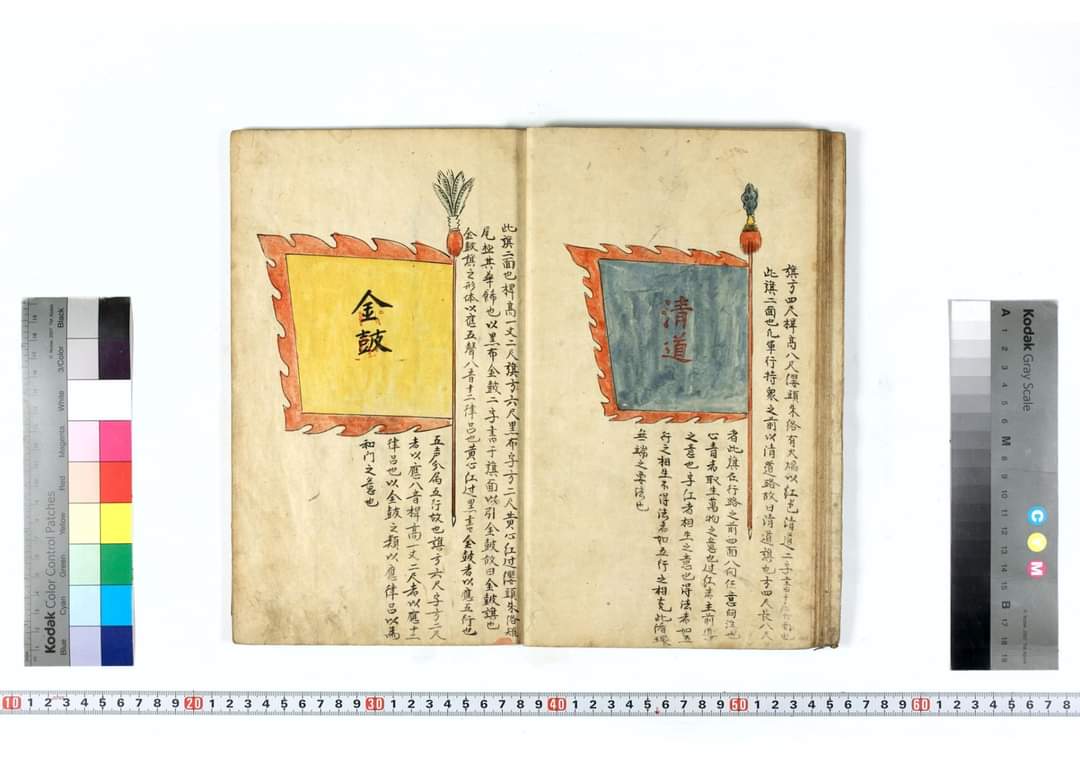 旗方四尺桿高八尺纓頭朱絡有
以紅色清道二字
此旗二面也凡軍行持衆之前以清道路故曰清道旗也方四尺長八尺
者此旗在行路之前四面八向任意向
也
心青者取生萬物之意也過紅者主前
之意也字紅者相生之意也得法者如五
行之相生不得法者如五行之相克此循環
無端之要法也
清道
此旗二面也桿高一丈二尺旗方六尺黑布字方二尺黄心紅过纓頭朱络
尾
其華飾也以黒布金鼓二字書于旗面以引金鼓故曰金鼓旗也
金鼓旗之形体以應五聲八音十二律呂也黄心紅过黒書金鼓者以應五行也
五声分属五行故也旗方六尺字方二尺
者以應八音桿高一丈二尺者以應十二
律呂也以金鼓之類以應律呂以為
和門之意也
金鼓
Kodak Color Control Patches
Blue
Cyan
Green
Yellow
Red
Magenta
White
3/Color
Black
Kodak Gray Scale
A 1 2 3 4 5 6 M 8 9 10 11 12 13 14 15 B 17 18 19
C
Y
M
10 1 2 3 4 5 6 7 8 9 20 1 2 3 4 5 6 7 8 9 30 1 2 3 4 5 6 7 8 9 40 1 2 3 4 5 6 7 8 9 50 1 2 3 4 5 6 7 8 9 60 1 2 3 4 5 6 7 8